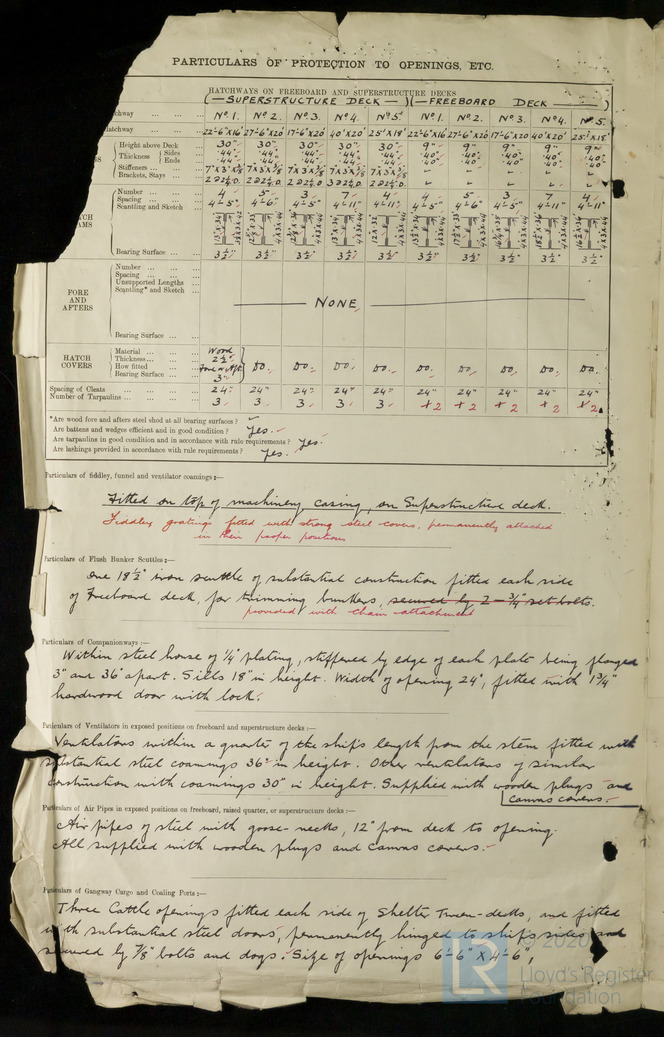 PARTICULARS OF PROTECTION TO OPENINGS, ETC.
HATCHWAYS ON FREEBOARD AND SUPERSTRUCTURE DECKS
(— SUPERSTRUCTURE DECK —) (— FREEBOARD DECK —)
hway ... Nº 1. Nº 2. Nº 3. Nº 4. Nº 5. Nº 1. Nº 2. Nº 3. Nº 4. Nº 5.
atchway ... 22'-6"X16' 27'-6"X20' 17'-6"X20' 40'X20' 25'X18' 22'-6"X16' 27'-6"X20' 17'-6"X20' 40'X20' 25'X18'
Height above Deck ... 30" 30" 30" 30" 30" 9" 9" 9" 9" 9"
Thickness Sides ·44" ·44" ·44" ·44" ·44" ·40" ·40" ·40" ·40" ·40"
Ends ·44" ·44" ·44" ·44" ·44" ·40" ·40" ·40" ·40" ·40"
Stiffeners ...
Brackets, Stays ...
HATCH BEAMS
Number ... 4 5 3 7 4 4 5 3 7 4
Spacing ... 4'-5" 4'-6" 4'-5" 4'-11" 4'-11" 4'-5" 4'-6" 4'-5" 4'-11" 4'-11"
Scantling and Sketch
Bearing Surface ... 3½" 3½" 3½" 3½" 3½" 3½" 3½" 3½" 3½" 3½"
FORE AND AFTERS
Number ...
Spacing ...
Unsupported Lengths
Scantling* and Sketch
NONE
Bearing Surface ...
HATCH COVERS
Material ... Wood
Thickness ... 2½"
How fitted Fore & Aft Do. Do. Do. Do. Do. Do. Do. Do. Do.
Bearing Surface ... 3"
Spacing of Cleats ... 24" 24" 24" 24" 24" 24" 24" 24" 24" 24"
Number of Tarpaulins ... 3 3 3 3 3 2 2 2 2 2
*Are wood fore and afters steel shod at all bearing surfaces? –
Are battens and wedges efficient and in good condition? Yes.
Are tarpaulins in good condition and in accordance with rule requirements? Yes.
Are lashings provided in accordance with rule requirements? Yes.
Particulars of fiddley, funnel and ventilator coamings:—
Fitted on top of machinery casing, on Superstructure deck.
Fiddley gratings fitted with strong steel covers, permanently attached
in their proper positions
Particulars of Flush Bunker Scuttles:—
One 18½" iron scuttle of substantial construction fitted each side
of Freeboard deck, for trimming bunkers, secured by 2 – ¾" set bolts.
provided with chain attachment
Particulars of Companionways:—
Within steel house of ¼" plating, stiffened by edge of each plate being flanged
3" and 36" apart. Sills 18" in height. Width of opening 24", fitted with 1¾"
hardwood door with lock.
Particulars of Ventilators in exposed positions on freeboard and superstructure decks:—
Ventilators within a quarter of the ship's length from the stem fitted with
substantial steel coamings 36" in height. Other ventilators of similar
construction with coamings 30" in height. Supplied with wooden plugs and
canvas covers.
Particulars of Air Pipes in exposed positions on freeboard, raised quarter, or superstructure decks:—
Air pipes of steel with goose-necks, 12" from deck to opening.
All supplied with wooden plugs and canvas covers.
Particulars of Gangway Cargo and Coaling Ports:—
Three Cattle openings fitted each side of Shelter Tween-decks, and fitted
with substantial steel doors, permanently hinged to ship's sides and
secured by ⅞" bolts and dogs. Size of openings 6'-6" X 4'-6",
LR
© 2020
Lloyd's Register
Foundation